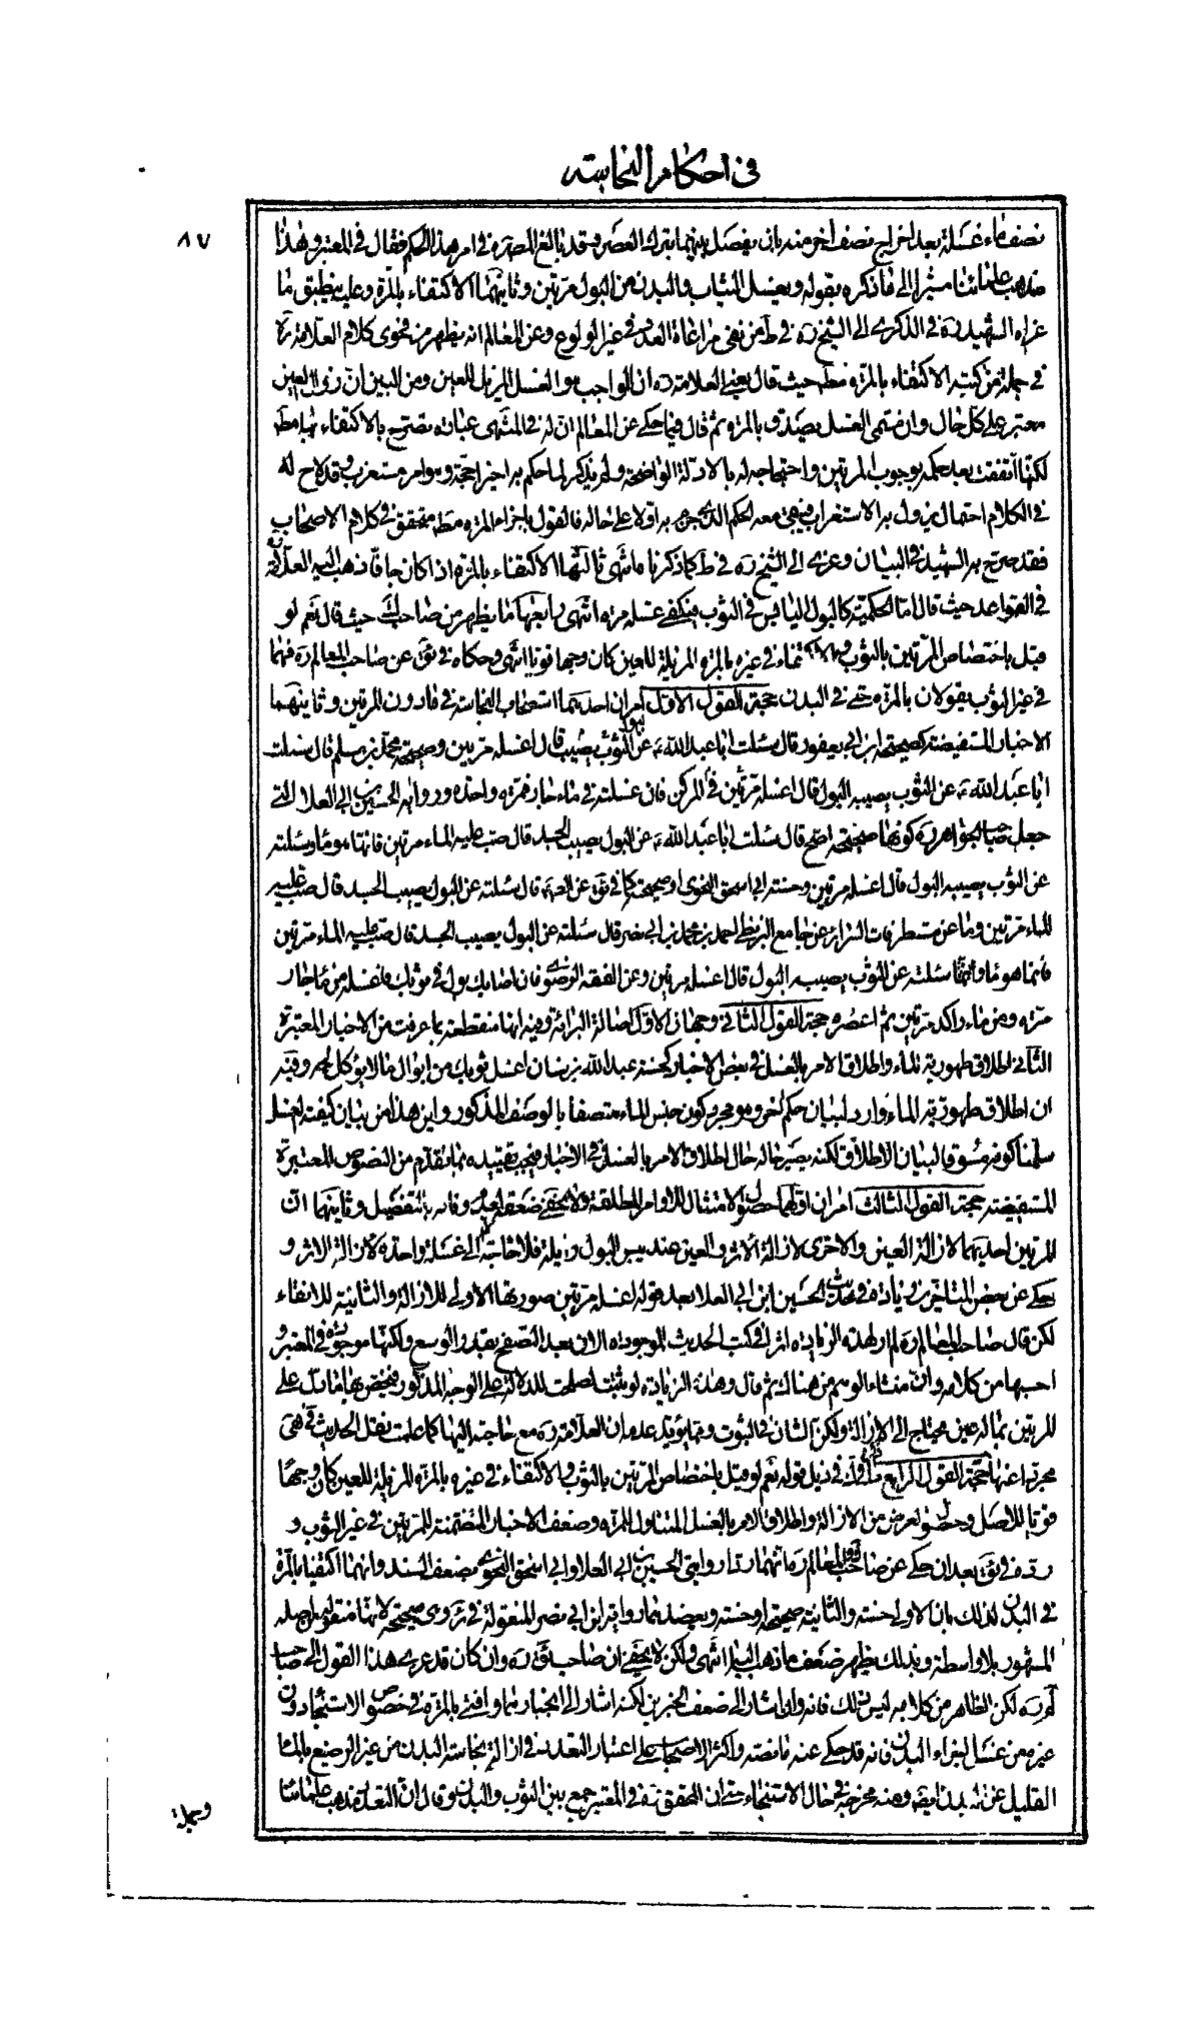 في احكام النجاسة
٨٧
نصف ماء غسلة بعد اخراج نصف اخر منه بان يفصل بينهما بترك العصر وقد بالغ المصره في امر هذا الحكم فقال في المعتبر وهذا
مذهب علمائنا مشيرا الى ما ذكره بقوله ويغسل الثياب والبدن من البول مرتين وثانيهما الاكتفاء بالمرة وعليه ينطبق ما
عزاه الشهيد ره في الذكرى الى الشيخ ره في ط من نفي مراعاة العدد في غير الولوغ وعن المعالم انه يظهر من فحوى كلام العلامة ره
في جملة من كتبه الاكتفاء بالمرة مطم حيث قال يعني العلامة ره ان الواجب هو الغسل المزيل للعين ومن البين ان زوال العين
معتبر على كل حال وان مسمى الغسل يصدق بالمرة ثم قال فيما حكى عن المعالم ان له في المنتهى عبارة تصرح بالاكتفاء بها مطم
لكنها اتفقت بعد حكمه بوجوب المرتين واحتجاجه له بالادلة الواضحة ولم يذكر لما حكم به اخيرا حجة وهو امر مستغرب وقد لاح له
في الكلام احتمال يزول به الاستغراب فيبقى معه الحكم الذي جزم به اولا على حاله فالقول باجزاء المرة مطم متحقق في كلام الاصحاب
فقد صرح به الشهيد في البيان وعزى الى الشيخ ره في ط كما ذكرنا ما انتهى ثالثها الاكتفاء بالمرة اذا كان جافا ذهب اليه العلامة ره
في القواعد حيث قال اما الحكمية كالبول اليابس في الثوب فيكفي غسله مرة انتهى رابعها ما يظهر من صاحب لك حيث قال نعم لو
قيل باختصاص المرتين بالثوب والاكتفاء في غيره بالمرة المزيلة للعين كان وجها قويا انتهى وحكاه في ئق عن صاحب المعالم ره فهما
في غير الثوب يقولان بالمرة حتى في البدن حجة القول الاول امران احدهما استصحاب النجاسة في ما دون المرتين وثانيهما
الاخبار المستفيضة كصحيحة ابن ابي يعفور قال سئلت ابا عبد الله ع عن البول الثوب يصيب قال اغسله مرتين وصحيحة محمد بن مسلم قال سئلت
ابا عبد الله ع عن الثوب يصيبه البول قال اغسله مرتين في المركن فان غسلته في ماء جار فمرة واحدة ورواية الحسين بن ابي العلا التي
جعل صاحب الجواهر ره كونها صحيحة اصح قال سئلت ابا عبد الله ع عن البول يصيب الجسد قال صب عليه الماء مرتين فانما هو ماء وسئلته
عن الثوب يصيبه البول قال اغسله مرتين وحسنة ابي اسحق النحوي او صحيحه كما في ئق عن الصم قال سئلته عن البول يصيب الجسد قال صب عليه
الماء مرتين وما عن مستطرفات السرائر عن جامع البزنطي احمد بن محمد بن ابي نصر قال سئلته عن البول يصيب الجسد قال صب عليه الماء مرتين
فانما هو ماء وايضا سئلته عن الثوب يصيبه البول قال اغسله مرتين وعن الفقه الرضوي فان اصابك بول في ثوبك فاغسله من ماء جار
مرة ومن ماء راكد مرتين ثم اعصره حجة القول الثاني وجهان الاول اصالة البرائة وفيه انها منقطعة بما عرفت من الاخبار المعتبرة
الثاني اطلاق طهورية الماء واطلاق الامر بالغسل في بعض الاخبار كحسنة عبد الله بن سنان اغسل ثوبك من ابوال ما لا يؤكل لحمه وفيه
ان اطلاق طهورية الماء وارد لبيان حكم اخر وهو مجرد كون جنس الماء متصفا بالوصف المذكور واين هذا من بيان كيفية الغسل
سلمنا كونه مسوقا لبيان الاطلاق لكنه يصير حاله حال اطلاق الامر بالغسل في الاخبار فيجب تقييده بما تقدم من النصوص المعتبرة
المستفيضة حجة القول الثالث امران اولهما حصول الامتثال للاوامر المطلقة ولا يخفى ضعفه لعدم وفائه بالتفصيل وثانيهما ان
المرتين احديهما لازالة العين والاخرى لازالة الاثر والعين عند يبس البول زايلة فلا حاجة الا الى غسلة واحدة لازالة الاثر و
حكى عن بعض المتاخرين زيادة في حديث الحسين ابن ابي العلا بعد قوله اغسله مرتين صورتها الاولى للازالة والثانية للانقاء
لكن قال صاحب المعالم ره لم ار لهذه الزيادة اثرا في كتب الحديث الموجودة الان بعد التصفح بقدر الوسع ولكنها موجودة في المعتبر و
احسبها من كلامه وان منشاء الوهم من هناك ثم قال وهذه الزيادة لو ثبتت لصلحت للدلالة على الوجه المذكور فيخص بها ما دل على
المرتين بما له عين محتاج الى الازالة ولكن الشان في الثبوت ومما يؤيد عدمه ان العلامة ره مع حاجته اليها كما علمت نقل الحديث في هى
مجردا عنها حجة القول الرابع ما في لك في ذيل قوله نعم لو قيل باختصاص المرتين بالثوب والاكتفاء في غيره بالمرة المزيلة للعين كان وجها
قويا للاصل وحصول الغرض من الازالة واطلاق الامر بالغسل المتناول للمرة وضعف الاخبار المتضمنة للمرتين في غير الثوب و
رده في ئق بعد ان حكى عن صاحب المعالم ره انهما ردا روايتي الحسين بن ابي العلا وابي اسحق النحوي بضعف السند وانهما اكتفيا بالمرة
في البدن لذلك بان الاولى حسنة والثانية صحيحة او حسنة ويعضدهما رواية ابن ابي نصر المنقولة في ئر وهى صحيحة لانها منقولة من اصله
المشهور بلا واسطة وبذلك يظهر ضعف ما ذهب اليه انتهى ولكن لا يخفى ان صاحب ئق ره وان كان قد عزى هذا القول الى صاحب
لم ره لكن الظاهر من كلامه ليس ذلك فانه وان اشار الى ضعف الخبرين لكنه اشار الى انجبارهما وافتى بالمرة في خصوص الاستنجاء دون
غيره من غسل اجزاء البدن فانه قد حكى عنه ما نصه واكثر الاصحاب على اعتبار التعدد في ازالة نجاسة البدن من غير الرضيع بالماء
القليل عن البدن ايضا ومنه مخرجه في حال الاستنجاء حتى ان المحقق ره في المعتبر جمع بين الثوب والبدن وقال ان التعدد مذهب علمائنا
وجملة